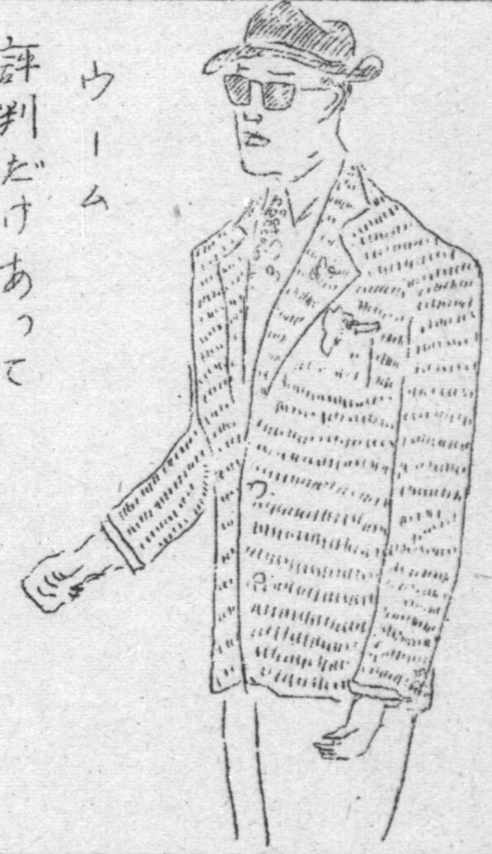 ウーム
評判だけあって